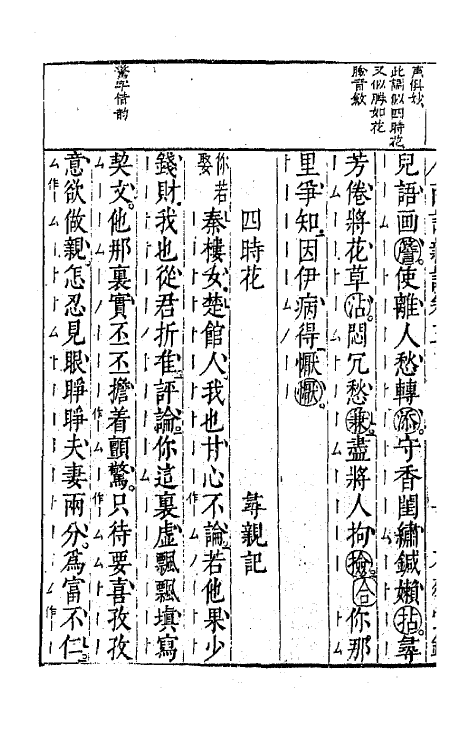 声俱妙
此調似四時花
又似勝如花
臉音斂
驚字借韵
兒語画簷。使離人愁轉添。守香閨繡鍼嬾拈。尋
芳倦將花草沾。悶冗愁兼盡將人拘撿合你那
里爭知因伊病得懨懨。
四時花 尋親記
你若娶秦樓女楚館人我也甘心不論若他果少
錢財我也從君折准評論你這裏虛飄飄填寫
契文。他那裏實丕丕擔着顫驚。只待要喜孜孜
意欲做親。怎忍見眼睜睜夫妻兩分。爲富不仁